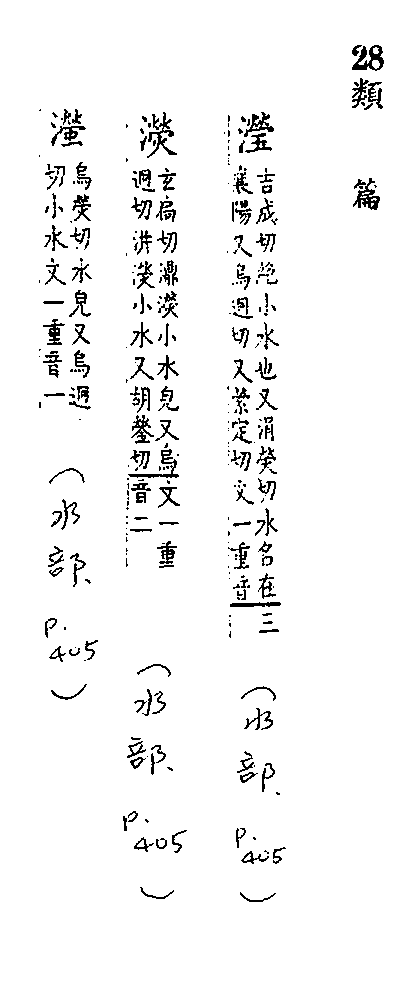 28類篇
瀅
吉成切絶小水也又涓熒切水名在三
襄陽又烏迥切又縈定切文一重音
(水部 p.405)
濙
玄扃切濎濙小水皃又烏文一重
迥切汫濙小水又胡鎣切音二
(水部 p.405)
烏熒切水皃又烏迥
切小水文一重音一
(水部 p.405)